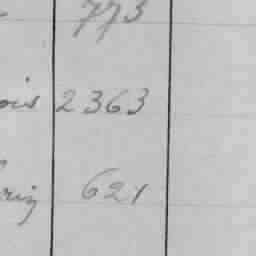 773
ois 2363
riz 621